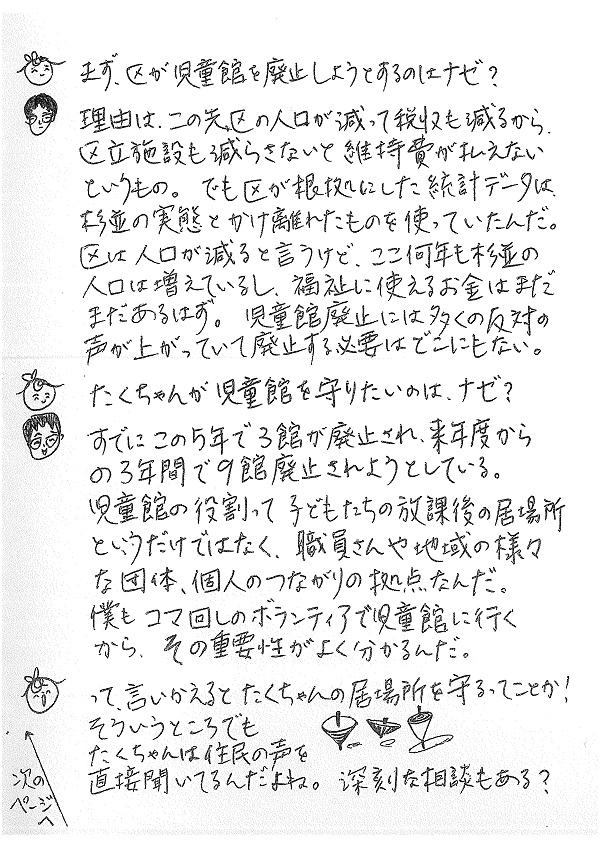 まず、区が児童館を廃止しようとするのはナゼ？
理由は、この先、区の人口が減って税収も減るから、
区立施設も減らさないと維持費が払えない
というもの。でも区が根拠にした統計データは、
杉並の実態とかけ離れたものを使っていたんだ。
区は人口が減ると言うけど、ここ何年も杉並の
人口は増えているし、福祉に使えるお金はまだ
まだあるはず。児童館廃止には多くの反対の
声が上がっていて廃止する必要はどこにもない。
たくちゃんが児童館を守りたいのは、ナゼ？
すでにこの5年で3館が廃止され、来年度から
の3年間で9館廃止されようとしている。
児童館の役割って子どもたちの放課後の居場所
というだけではなく、職員さんや地域の様々
な団体、個人のつながりの拠点なんだ。
僕もコマ回しのボランティアで児童館に行く
から、その重要性がよく分かるんだ。
って、言いかえるとたくちゃんの居場所を守るってことか！
そういうところでも
たくちゃんは住民の声を
直接聞いてるんだよね。深刻な相談もある？
次の
ページ
へ